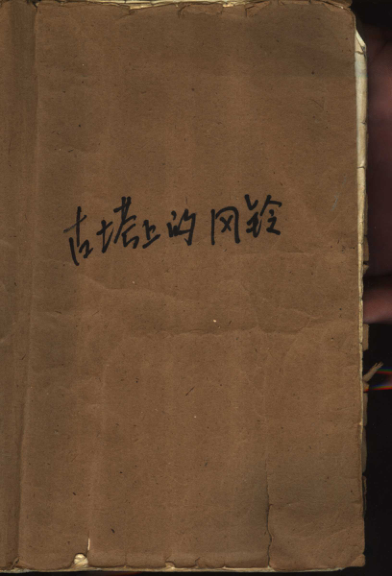 古塔上的风铃